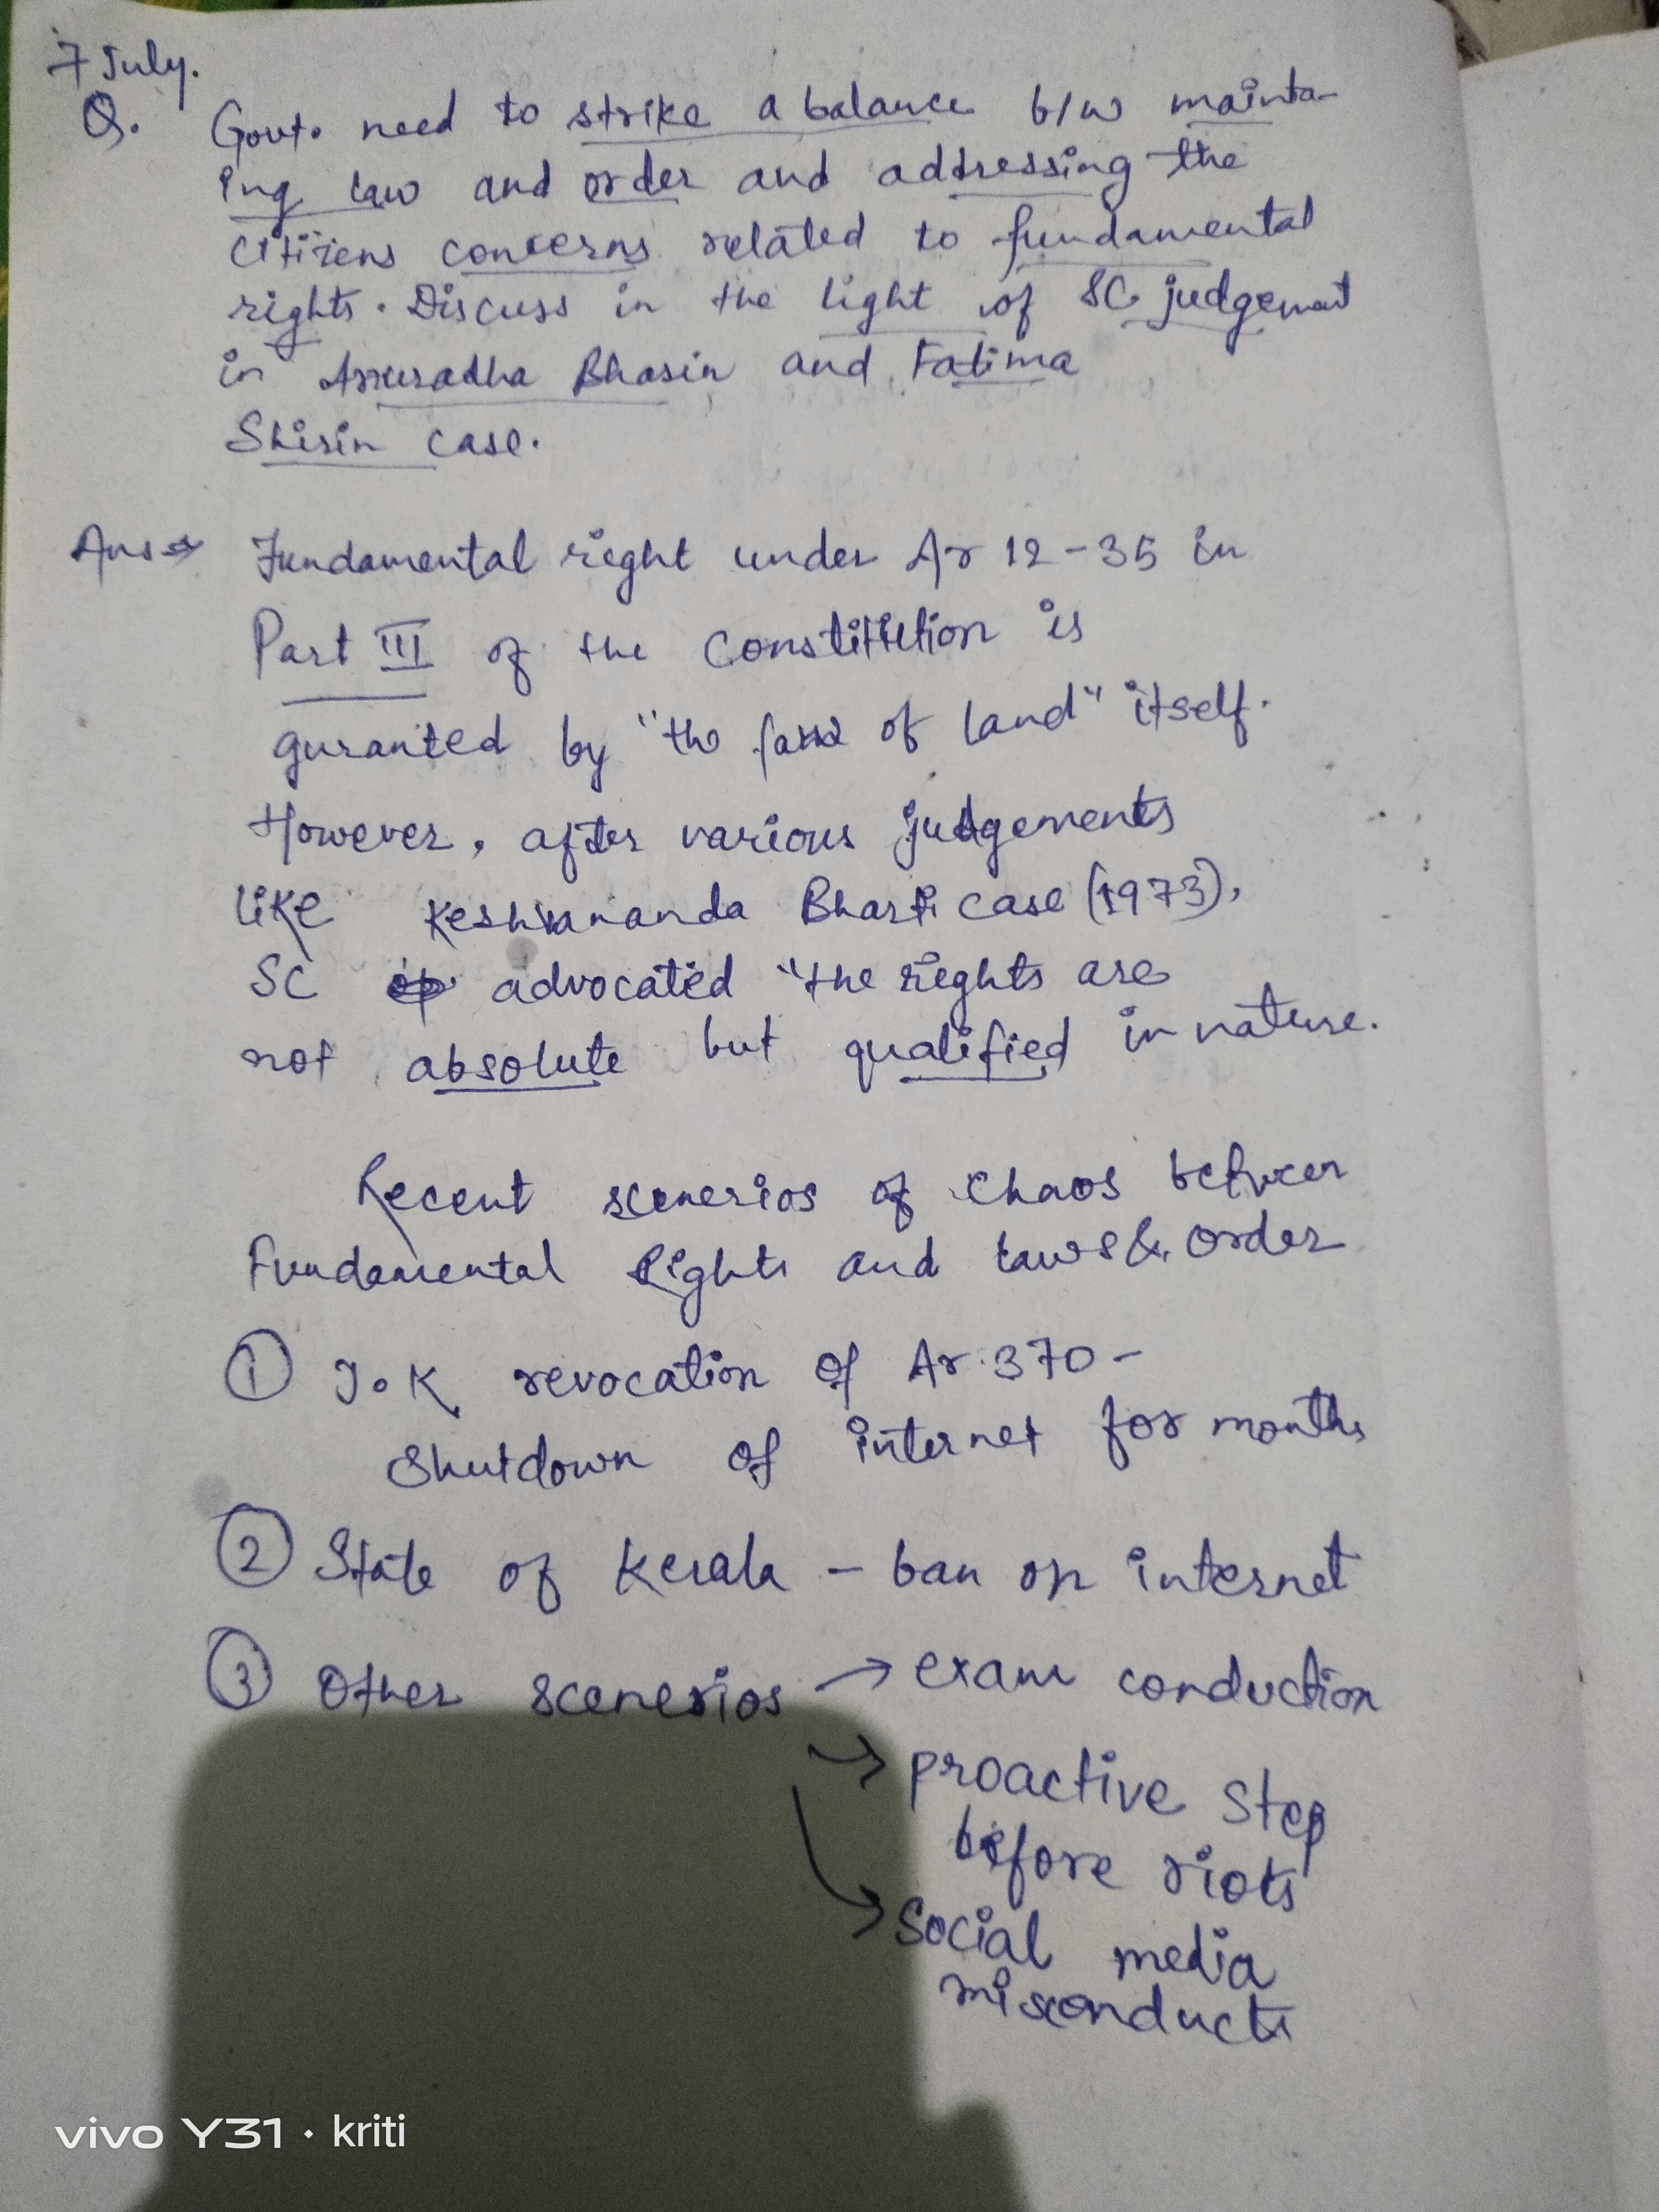 7 July.
Q. Govt. need to strike a balance b/w mainta-
ing law and order and addressing the
citizens concerns related to fundamental
rights. Discuss in the light of SC judgement
in Anuradha Bhasin and Fatima
Shirin case.
Ans → Fundamental right under Ar 12-35 in
Part III of the Constitution is
guranted by "the law of land" itself.
However, after various judgements
like Keshvananda Bharti case (1973),
SC advocated "the rights are
not absolute but qualified in nature.
Recent scenerios of chaos between
Fundamental Rights and laws & order
① J.K revocation of Ar. 370 -
Shutdown of internet for months
② State of Kerala - ban on internet
③ Other scenerios → exam conduction
→ proactive step
before riots
→ Social media
misconducts
vivo Y31 · kriti